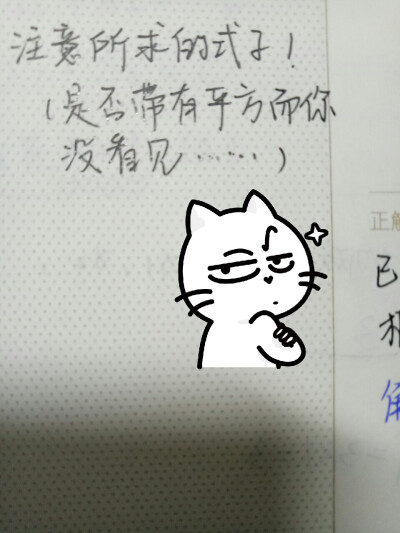 注意所求的式子！
（是否带有平方而你
没看见……）
正解
已
角